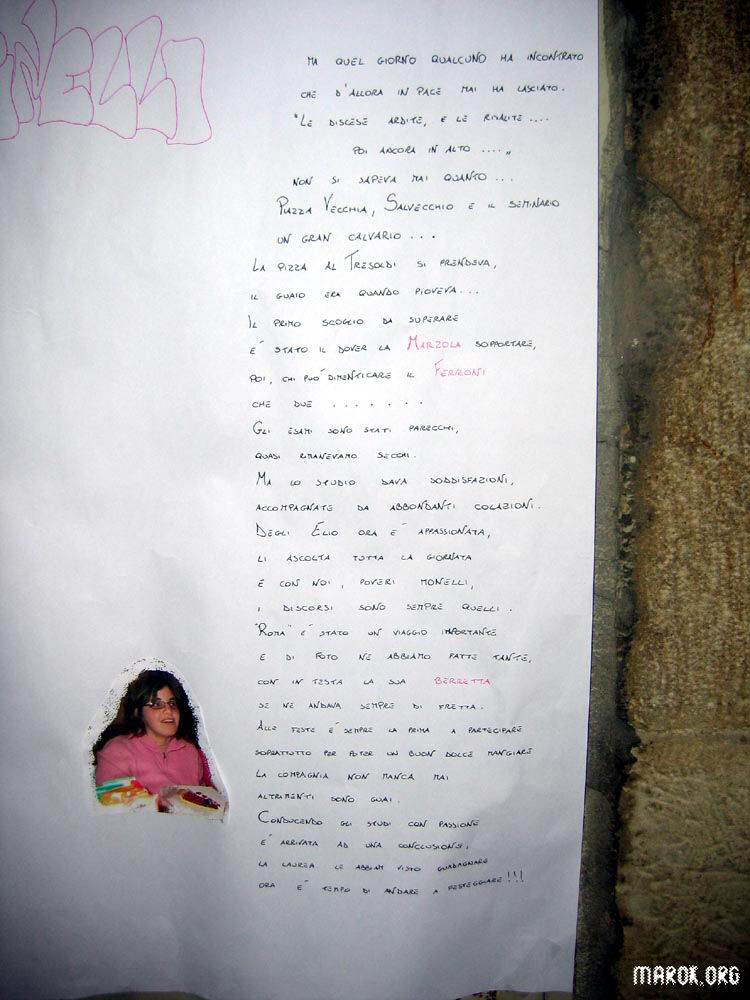 NELLI
MA QUEL GIORNO QUALCUNO HA INCONTRATO
CHE D'ALLORA IN PACE MAI HA LASCIATO.
"LE DISCESE ARDITE, E LE RISALITE ....
POI ANCORA IN ALTO ...."
NON SI SAPEVA MAI QUANTO ...
PIAZZA VECCHIA, SALVECCHIO E IL SEMINARIO
UN GRAN CALVARIO ...
LA PIZZA AL TRESOLDI SI PRENDEVA,
IL GUAIO ERA QUANDO PIOVEVA...
IL PRIMO SCOGLIO DA SUPERARE
E' STATO IL DOVER LA MARZOLA SOPPORTARE,
POI, CHI PUO' DIMENTICARE IL FERRONI
CHE DUE ........
GLI ESAMI SONO STATI PARECCHI,
QUASI RIMANEVAMO SECCHI.
MA LO STUDIO DAVA SODDISFAZIONI,
ACCOMPAGNATE DA ABBONDANTI COLAZIONI.
DEGLI ELIO ORA E' APPASSIONATA,
LI ASCOLTA TUTTA LA GIORNATA
E CON NOI, POVERI MONELLI,
I DISCORSI SONO SEMPRE QUELLI.
"ROMA" E' STATO UN VIAGGIO IMPORTANTE
E DI FOTO NE ABBIAMO FATTE TANTE,
CON IN TESTA LA SUA BERRETTA
SE NE ANDAVA SEMPRE DI FRETTA.
ALLE FESTE E' SEMPRE LA PRIMA A PARTECIPARE
SOPRATTUTTO PER POTER UN BUON DOLCE MANGIARE
LA COMPAGNIA NON MANCA MAI
ALTRIMENTI SONO GUAI.
CONDUCENDO GLI STUDI CON PASSIONE
E' ARRIVATA AD UNA CONCLUSIONE,
LA LAUREA LE ABBIAM VISTO GUADAGNARE
ORA E' TEMPO DI ANDARE A FESTEGGIARE!!!
MAROK.ORG